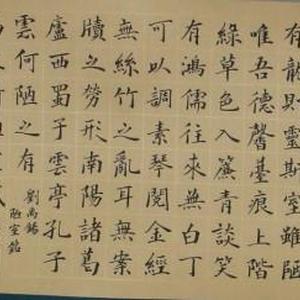 有龍則靈斯室雖陋
唯吾德馨臺痕上階
綠草色入簾青談笑
有鴻儒往來無白丁
可以調素琴閱金經
無絲竹之亂耳無案
牘之勞形南陽諸葛
廬西蜀子雲亭孔子
雲何陋之有
劉禹錫
陋室銘